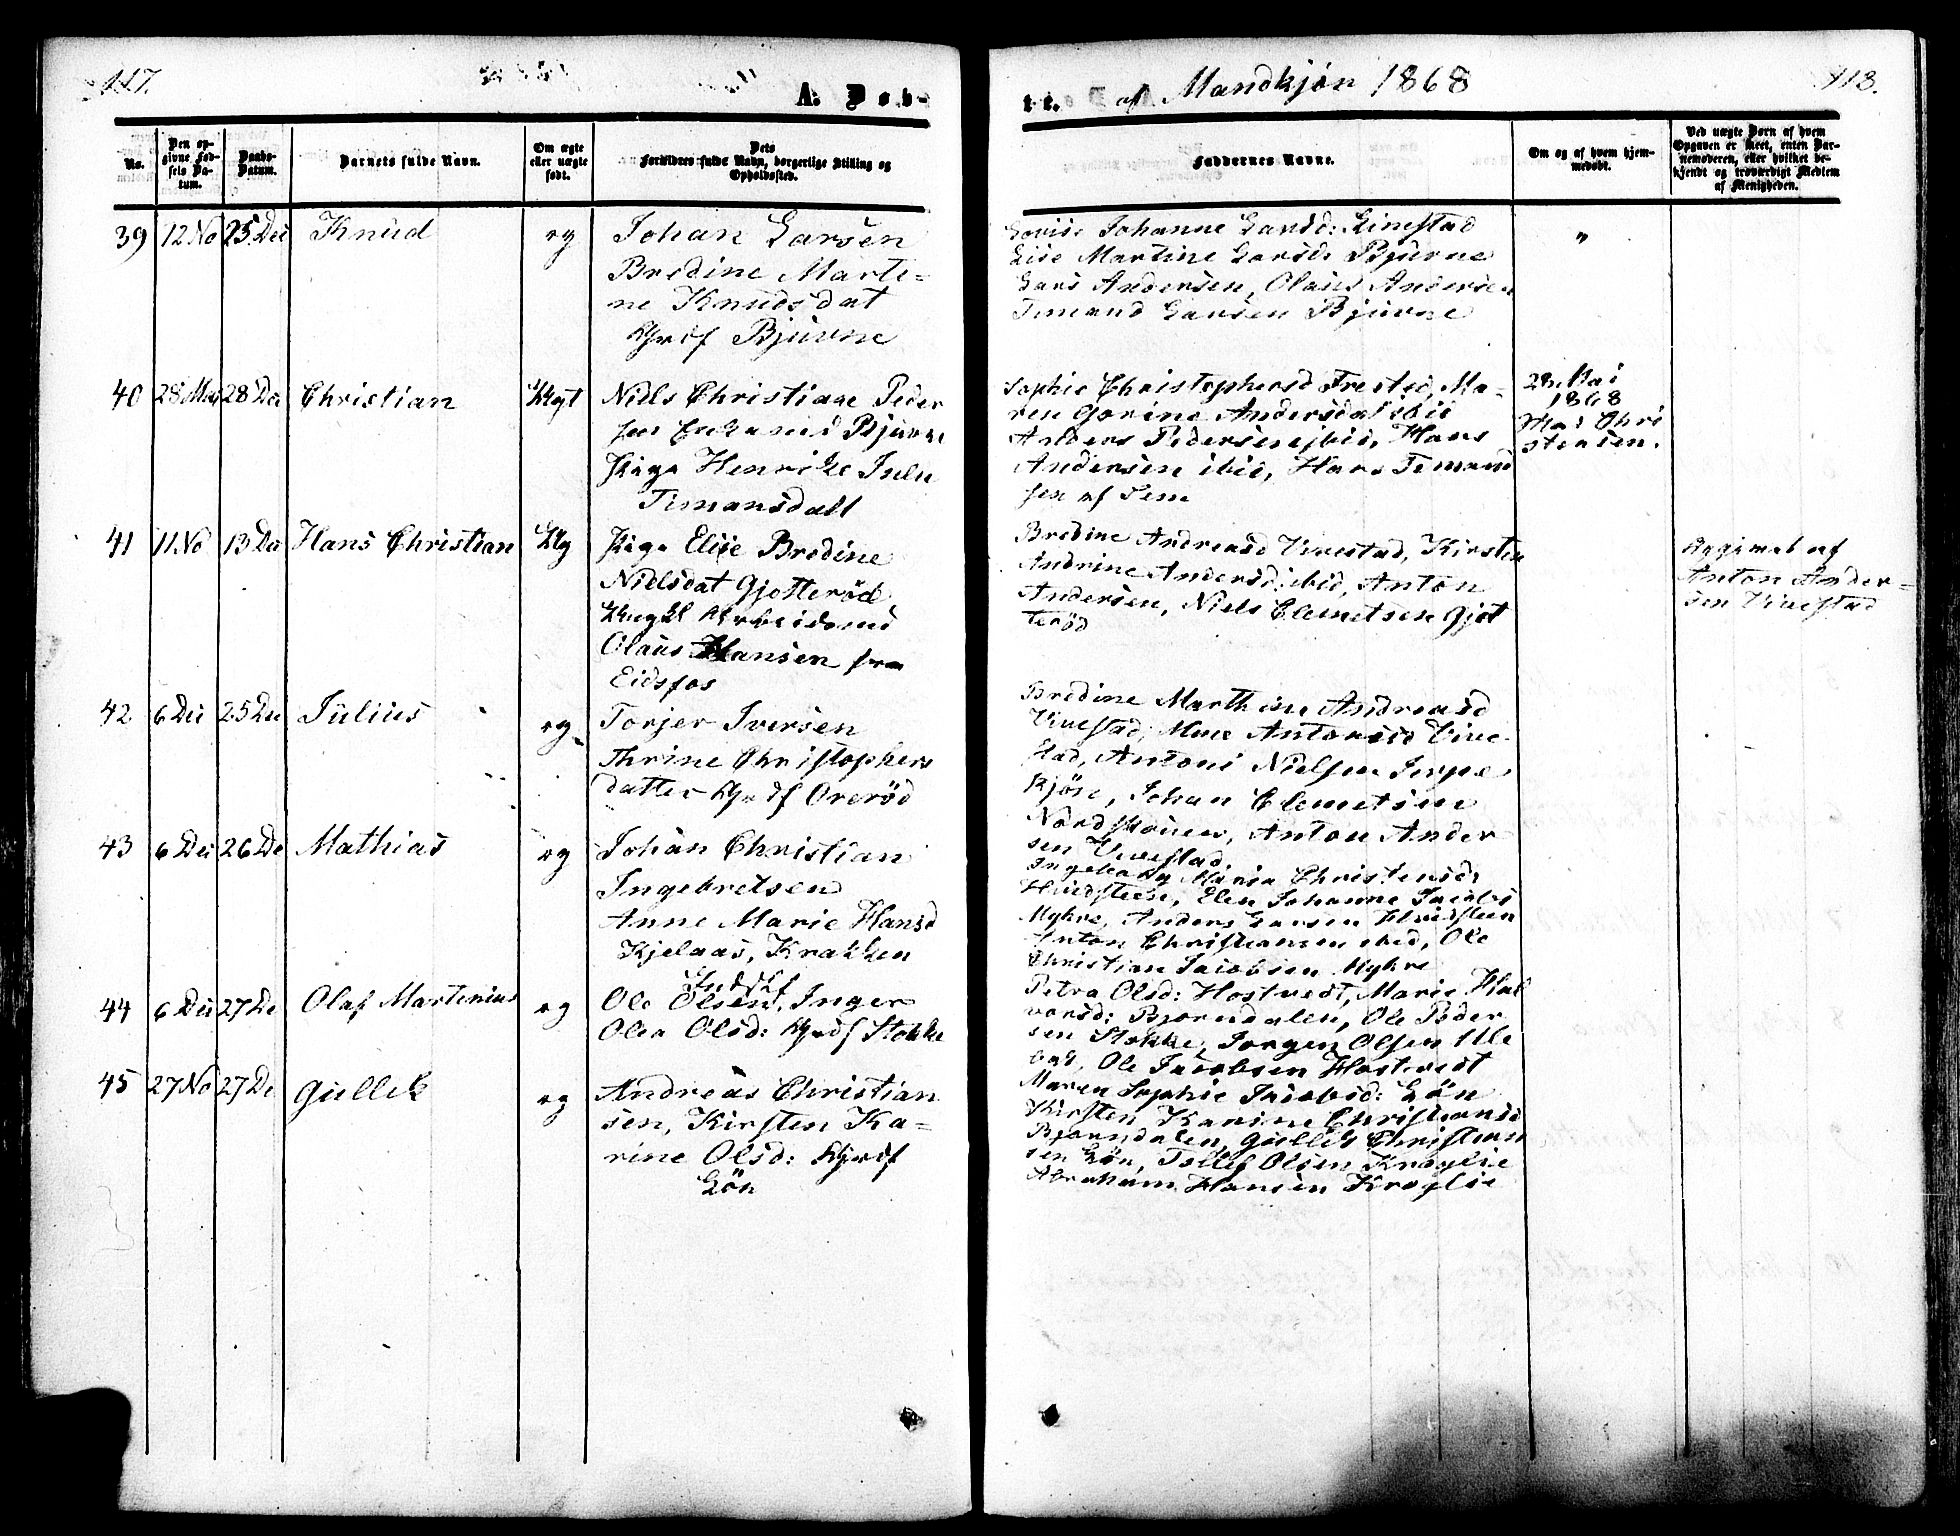 117.
A. Døb-
No.
Den op-
givne Fød-
sels Da-
tum.
Daabs-
Datum.
Barnets fulde Navn.
Om ægte
eller uægte
født.
Dets
Forældres fulde Navn, borgerlige Stilling og
Opholdssted.
39 12 No 25 Dei Knud eg Johan Larsen
Bredine Marti-
ne Knudsdat
Bjurne
40 28 Mai 28 De Christian Niels Christian Peder
Bjurne
Pige Henrike Julu
Timansdatt
41 11 No 13 De Hans Christian Pige Elise Bredine
Nielsdat Gjotteröd
Arbeidsmd
Olaus Hansen fra
Eidsfos
42 6 Dei 25 De Julius eg Torjer Iversen
Thrine Christophers
datter Ororöd
43 6 Dei 26 De Mathias eg Johan Christian
Ingebretsen
Anne Marie Hansd
Kjelaas, Krakken
44 6 Dei 27 De Olaf Martinius eg Ole Olsen, Inger
Olea Olsd: Stokke
45 27 No 27 De Gullek eg Andreas Christian
sen, Kirsten Ka-
rine Olsd:
Lön
118.
te. af Mandkjön 1868
Faddernes Navne.
Om og af hvem hjem-
medøbt.
Ved uægte Børn af hvem
Opgaven er skeet, enten Bar-
nemoderen, eller hvilket be-
kjendt og troværdigt Medlem
af Menigheden.
Lovise Johanne Larsd: Linestad
Lise Martine Larsd: Bjurne
Lars Andersen, Olaus Andersen
Timand Larsen Bjurne
"
Sophie Christophersd Frested, Ma-
ren Gorine Andersdat ibid
Anders Pedersen ibid, Hans
Andersen ibid, Hans Timand
sen af Sem
28 Mai
1868
Chri
stensen.
Bredine Andreasd Vivestad, Kirsten
Andrine Andersd: ibid, Anton
Andersen, Niels Clemetsen Gjot
teröd
Opgivet af
Anton Ander-
sen Vivestad
Bredine Marthine Andreasd
Vivestad, Antonsd Vive
stad, Antoni Nielsen
Kjöse, Johan Clemetsen
Nordskouen, Anton Ander
sen Vivestad.
Ingeborg Maria Christensd:
Hvidsteen, Elen Johanne Jacobs
Myhre, Anders Larsen Hvidsteen
Anton Christiansen ibid, Ole
Christian Jacobsen Myhre
Petra Olsd: Hostvedt, Marie Hal
vorsd: Bjorndalen, Ole Peder
sen Stokke, Jorgen Olsen Ulle
bak, Ole Jacobsen Hostvedt
Maren Sophie Jacobsd: Lön
Kirsten Karine Christiansd
Bjorndalen, Gullik Christian
sen Lön, Tollef Olsen Kroglie
Abraham Hansen Kroglie